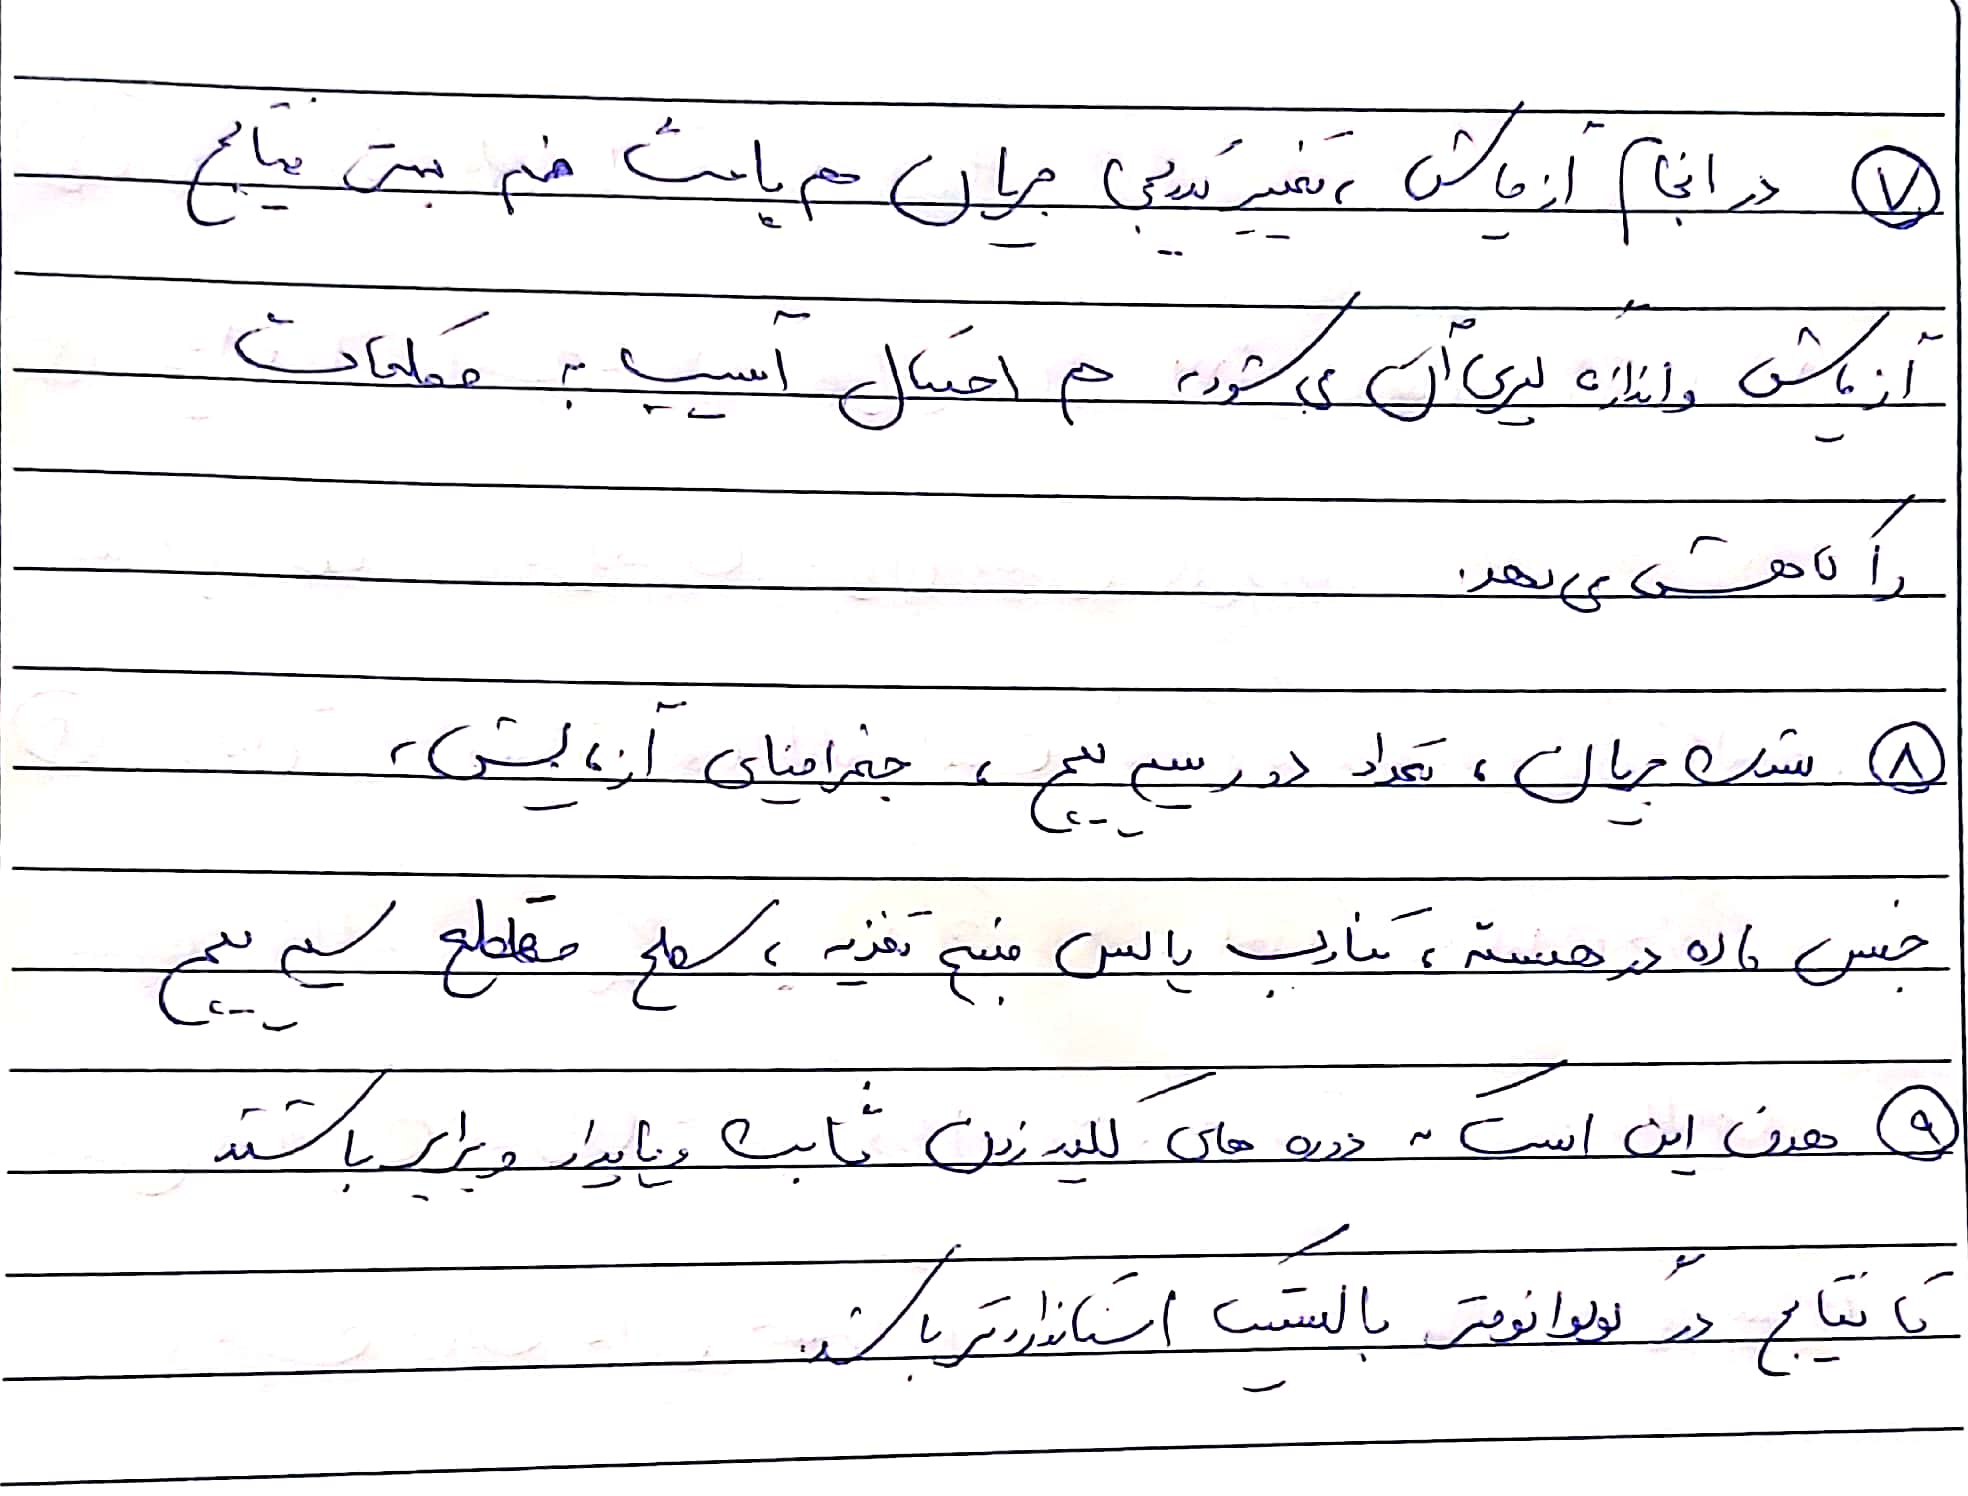 ۷ در انجام آزمایش ، تغییر تدریجی جریان هم باعث فهم بهتر نتایج
آزمایش و اندازه گیری آن می شود، هم احتمال آسیب به قطعات
را کاهش می دهد.
۸ شدت جریان ، تعداد دور سیم پیچ ، جغرافیای آزمایش ،
جنس ماده در هسته ، تناوب پالس منبع تغذیه ، سطح مقطع سیم پیچ
۹ هدف این است که دوره های کلید زدن ثابت و پایدار و برابر باشند
تا نتایج در گالوانومتر بالستیک استانداردتر باشد.